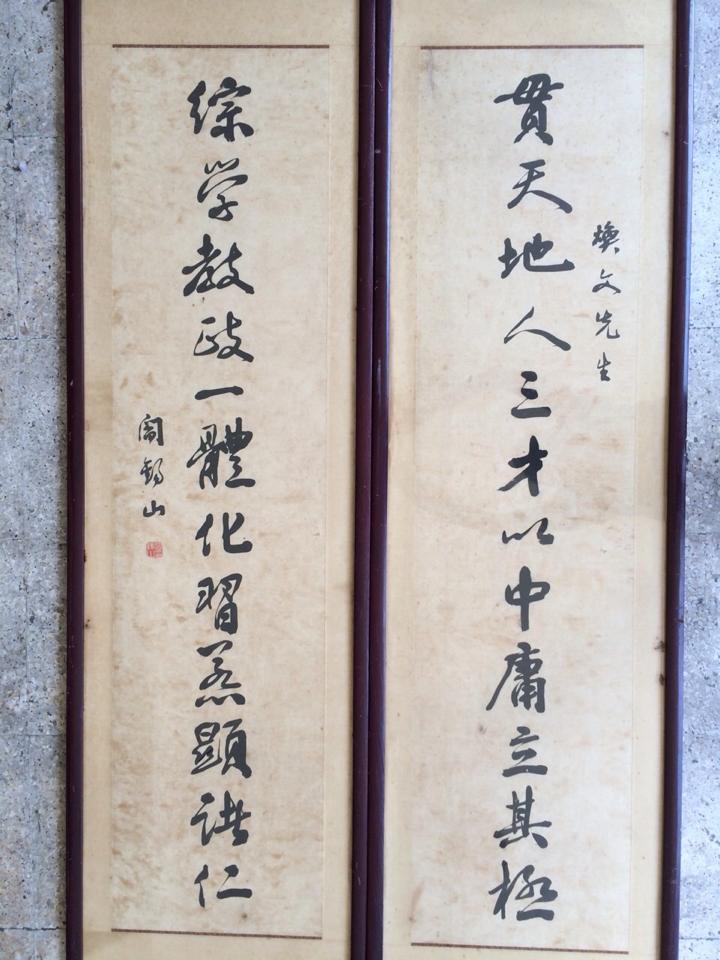 煥文先生
貫天地人三才以中庸立其極
綜学教政一體化習炁顯諸仁
閻錫山